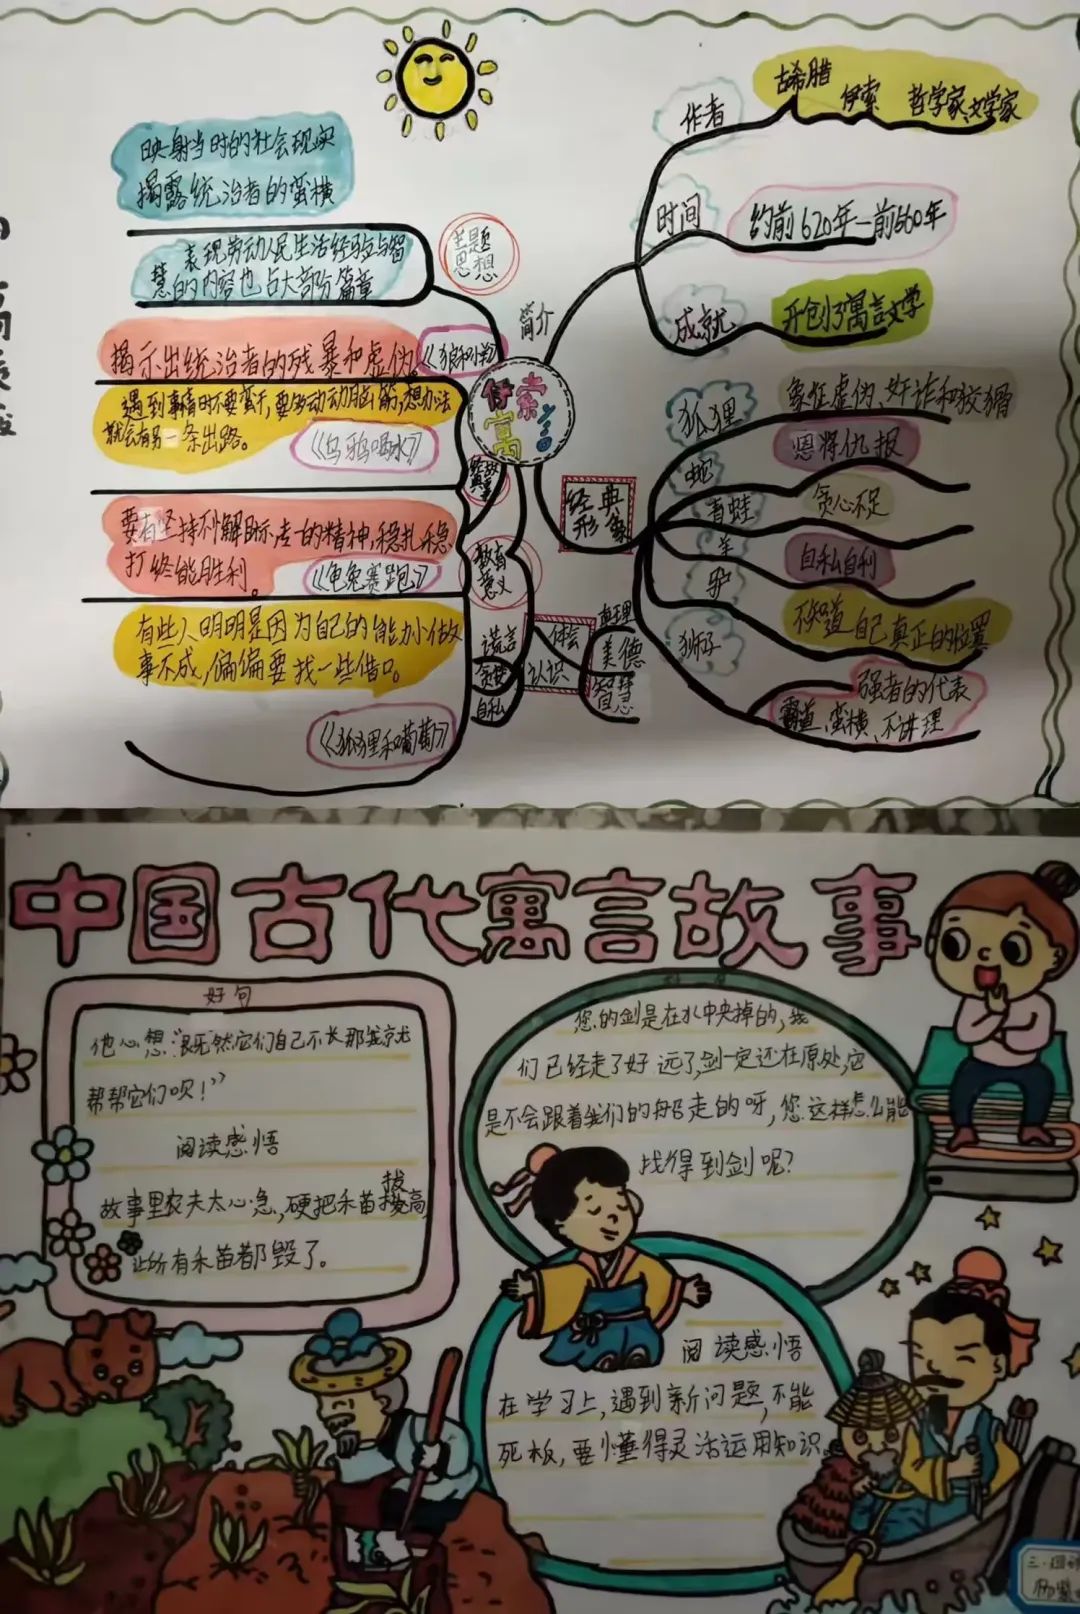 伊索
寓言
简介
作者
古希腊
伊索
哲学家、文学家
时间
约前620年—前560年
成就
开创了寓言文学
经典
形象
狐狸
象征虚伪、奸诈和狡猾
蛇
恩将仇报
青蛙
贪心不足
羊
自私自利
驴
不知道自己真正的位置
狮子
强者的代表
霸道、蛮横、不讲理
主题
思想
映射当时的社会现实
揭露统治者的蛮横
表现劳动人民生活经验与智
慧的内容也占大部分篇章
揭示出统治者的残暴和虚伪。
遇到事情时不要蛮干,要多动动脑筋,想办法
就会有另一条出路。
《乌鸦喝水》
要有坚持不懈
的精神,稳扎稳
打 终能胜利。
《龟兔赛跑》
有些人明明是因为自己的能力小做
事不成,偏偏要找一些借口。
《狐狸和葡萄》
教育
意义
谎言
自私
体会
认识
真理
美德
智慧
中国古代寓言故事
好句
他心想:“既然它们自己不长那我就
帮帮它们呗!”
阅读感悟
故事里农夫太心急,硬把禾苗拔高,
让所有禾苗都毁了。
您的剑是在水中央掉的,我
们已经走了好远了,剑一定还在原处,它
是不会跟着我们的船走的呀,您这样怎么能
找得到剑呢?
阅读感悟
在学习上,遇到新问题,不能
死板,要懂得灵活运用知识。